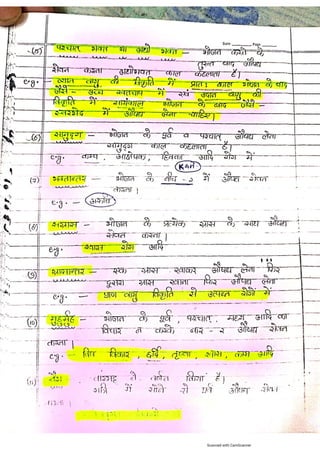 (5) पश्चात् भक्त या अधो भक्त - भोजन करने के
तुरन्त बाद औषध
सेवन करना अधोभक्त काल कहलाता है।
e.g. - व्यान वायु की विकृति में प्रातः काल भोजन के बाद
जैसे - उच्च रक्तचाप में एवं उदान वायु की
विकृति में सायंकाल भोजन के बाद जैसे -
स्वरभेद में औषध लेना चाहिए।
(6) सामुद्ग - भोजन के पूर्व व पश्चात् औषध लेना
सामुद्ग काल कहलाता है।
e.g. कम्प, आक्षेपक, हिक्का आदि रोग में
(7) भक्तान्तर - भोजन के बीच - २ में औषध सेवन
करना।
e.g. -
(8) सग्रास - भोजन के प्रत्येक ग्रास के साथ औषध
सेवन करना।
e.g. श्वास रोग आदि
(9) ग्रासान्तर - एक ग्रास खाकर औषध लेना फिर
दूसरा ग्रास खाना फिर औषध लेना
e.g. - प्राण वायु विकृति से उत्पन्न रोगों में
(10) मुहुर्मुहु - भोजन के पूर्व, पश्चात्, मध्य आदि का
विचार न करके बार - २ औषध सेवन
करना।
e.g. - विष विकार, छर्दि, तृष्णा, श्वास, कास आदि
(11) ने वर्णन किया है।
रात्रि में सोने से पूर्व औषध सेवन
करना।
Scanned with CamScanner